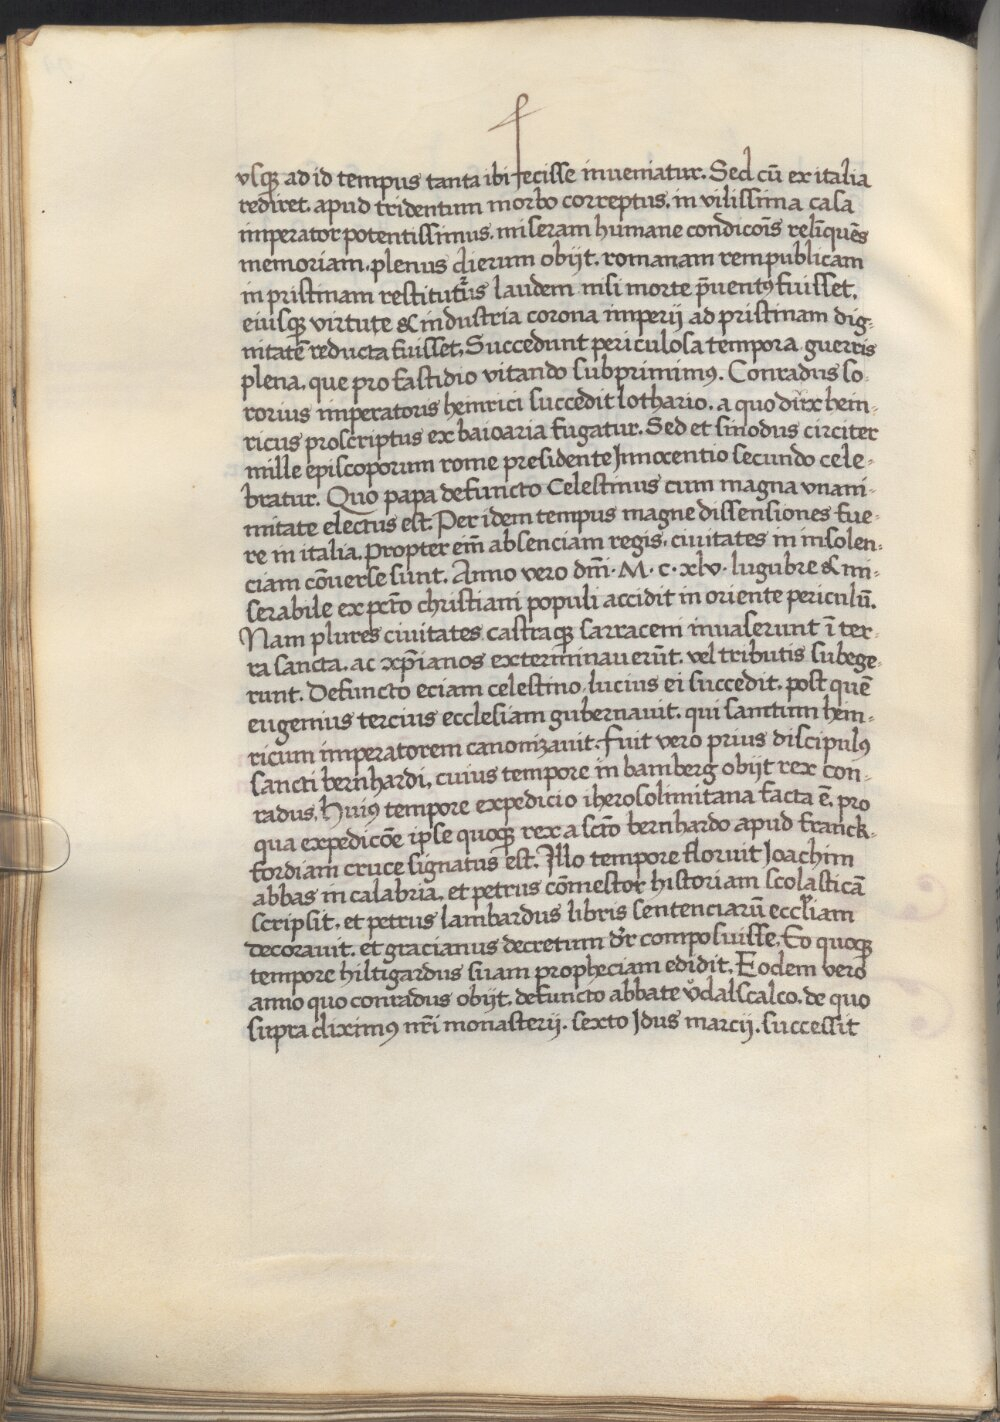 vsq̃ ad id tempus tanta ibi fecisse inueniatur. Sed cū ex italia
rediret. apud tridentum morbo correptus. in vilissima casa
imperator potentissimus. miseram humane condicoīs reliquēs
memoriam. plenus dierum obijt. romanam rempublicam
in pristinam restituturus laudem nisi morte p̄uentꝰ fuisset.
eiusq̃ virtute & industria corona imperij ad pristinam dig-
nitatē reducta fuisset. Succedunt periculosa tempora guerris
plena. que pro fastidio vitando subprimimꝰ. Conradus so-
rorius imperatoris heinrici succedit lothario. a quo dux hein-
ricus proscriptus ex baioaria fugatur. Sed et sinodus circiter
mille episcoporum rome presidente Innocentio secundo cele-
bratur. Quo papa defuncto Celestinus cum magna vnani-
mitate electus est. Per idem tempus magne dissensiones fue-
re in italia. Propter em̄ absenciam regis. ciuitates in insolen-
ciam cōuerse sunt. Anno vero dm̄. M. c. xlv. lugubre & mi-
serabile ex pctō christiani populi accidit in oriente periculū.
Nam plures ciuitates castraq̃ sarraceni inuaserunt ī ter-
ra sancta. ac xp̄ianos exterminauerūt. vel tributis subege-
runt. Defuncto eciam celestino lucius ei succedit. post quē
eugenius tercius ecclesiam gubernauit. qui sanctum hein-
ricum imperatorem canonizauit. Fuit vero prius discipulꝰ
sancti bernhardi. cuius tempore in bamberg obijt rex con-
radus. Huiꝰ tempore expedicio iherosolimitana facta ē. pro
qua expedicōe ipse quoq̃ rex a sctō bernhardo apud franck-
fordiam cruce signatus est. Illo tempore floruit Joachim
abbas in calabria. et petrus cōmestor historiam scolasticā
scripsit. et petrus lambardus libris sentenciarū eccliam
decorauit. et gracianus decretum dr̄ composuisse. Eo quoq̃
tempore hiltigardus suam propheciam edidit. Eodem vero
anno quo conradus obijt. defuncto abbate vͦdalscalco. de quo
supra diximꝰ nr̄i monasterij. sexto Idus marcij. successit